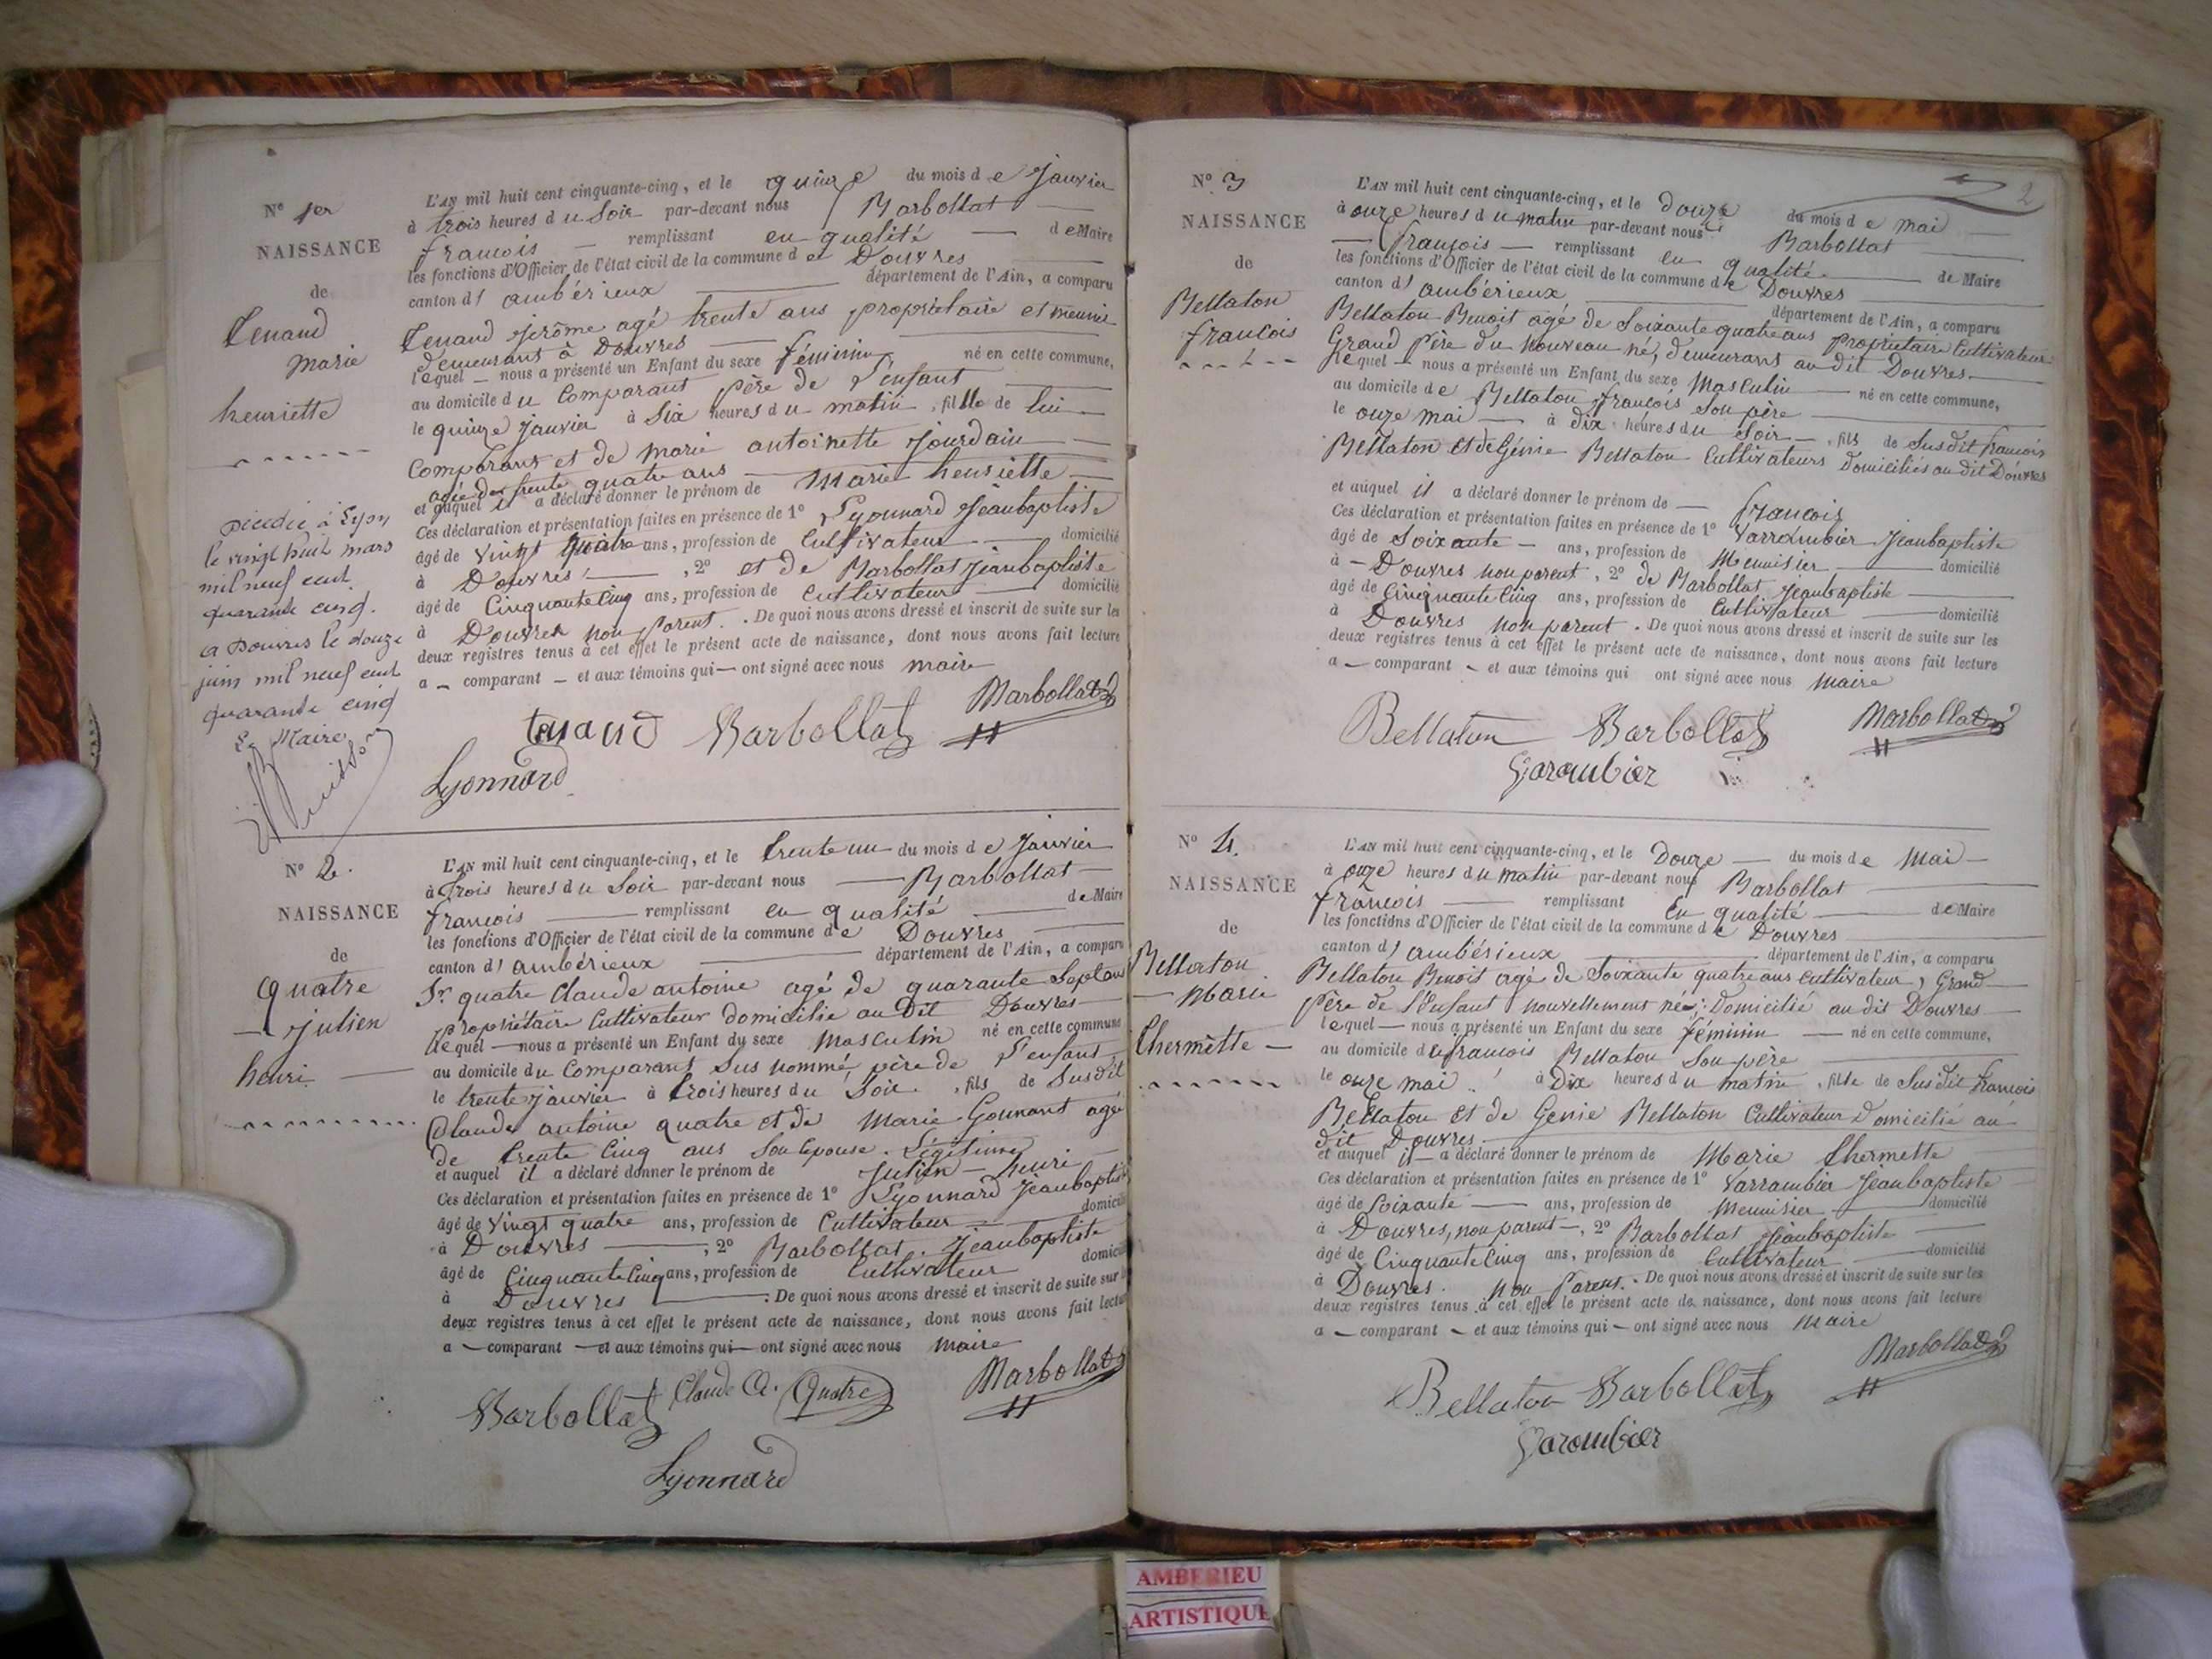 N° 1er
NAISSANCE
de
Tenand
marie
henriette
décédée à Lyon
le vingt huit mars
mil neuf cent
quarante cinq.
a Douvres le douze
juin mil neuf cent
quarante cinq
Le Maire
L'AN mil huit cent cinquante-cinq, et le quinze du mois de janvier
à trois heures du Soir par-devant nous Barbollat
francois remplissant en qualité de Maire
les fonctions d'Officier de l'état civil de la commune de Douvres
canton d' ambérieux département de l'Ain, a comparu
Tenand jerôme agé trente ans propriétaire et meunier
demeurant à Douvres
lequel nous a présenté un Enfant du sexe féminin né en cette commune,
au domicile du Comparant père de l'enfant
le quinze janvier à Six heures du matin, fille de lui
Comparant et de marie antoinette jourdain
agée de trente quatre ans
et auquel il a déclaré donner le prénom de Marie henriette
Ces déclaration et présentation faites en présence de 1° Lyonnard Jeanbaptiste
âgé de vingt quatre ans, profession de Cultivateur domicilié
à Douvres, 2° et de Barbollat jeanbaptiste
âgé de Cinquante Cinq ans, profession de Cultivateur domicilié
à Douvres non parent. De quoi nous avons dressé et inscrit de suite sur les
deux registres tenus à cet effet le présent acte de naissance, dont nous avons fait lecture
a comparant et aux témoins qui ont signé avec nous maire
tenand Barbollat Barbollat
Lyonnard
N° 2.
NAISSANCE
de
quatre
julien
henri
L'AN mil huit cent cinquante-cinq, et le trente un du mois de janvier
à trois heures du Soir par-devant nous Barbollat
francois remplissant en qualité de Maire
les fonctions d'Officier de l'état civil de la commune de Douvres
canton d' ambérieux département de l'Ain, a comparu
Sr quatre Claude antoine agé de quarante Sept ans
propriétaire Cultivateur domicilié au dit Douvres
lequel nous a présenté un Enfant du sexe masculin né en cette commune
au domicile du Comparant sus nommé, père de l'enfant,
le trente janvier à trois heures du Soir, fils de Susdit
Claude antoine quatre et de Marie Gonnant agé
de trente Cinq ans Son epouse Légitime
et auquel il a déclaré donner le prénom de julien henri
Ces déclaration et présentation faites en présence de 1° Lyonnard Jeanbaptiste
âgé de vingt quatre ans, profession de Cultivateur domicilié
à Douvres, 2° Barbollat Jeanbaptiste
âgé de Cinquante Cinq ans, profession de Cultivateur domicilié
à Douvres. De quoi nous avons dressé et inscrit de suite sur
deux registres tenus à cet effet le présent acte de naissance, dont nous avons fait lecture
a comparant et aux témoins qui ont signé avec nous maire
Barbollat Claude A. Quatre Barbollat
Lyonnard
2
N° 3
NAISSANCE
de
Bellaton
francois
L'AN mil huit cent cinquante-cinq, et le douze du mois de mai
à onze heures du matin par-devant nous Barbollat
françois remplissant en qualité de Maire
les fonctions d'Officier de l'état civil de la commune de Douvres
canton d' ambérieux département de l'Ain, a comparu
Bellaton Benoit agé de Soixante quatre ans propriétaire Cultivateur
Grand père du nouveau né, demeurant au dit Douvres
lequel nous a présenté un Enfant du sexe Masculin né en cette commune,
au domicile de Bellaton françois son père
le onze mai à dix heures du Soir, fils de Susdit francois
Bellaton et de Génie Bellaton Cultivateurs domiciliés au dit Douvres
et auquel il a déclaré donner le prénom de francois
Ces déclaration et présentation faites en présence de 1° Varrambier Jeanbaptiste
âgé de Soixante ans, profession de Menuisier domicilié
à Douvres non parent, 2° de Barbollat jeanbaptiste
âgé de Cinquante Cinq ans, profession de Cultivateur domicilié
à Douvres non parent. De quoi nous avons dressé et inscrit de suite sur les
deux registres tenus à cet effet le présent acte de naissance, dont nous avons fait lecture
a comparant et aux témoins qui ont signé avec nous maire
Bellaton Barbollat Barbollat
Varambier
N° 4.
NAISSANCE
de
Bellaton
Marie
Thermette
L'AN mil huit cent cinquante-cinq, et le Douze du mois de Mai
à onze heures du matin par-devant nous Barbollat
francois remplissant en qualité de Maire
les fonctions d'Officier de l'état civil de la commune de Douvres
canton d' ambérieux département de l'Ain, a comparu
Bellaton Benoit agé de Soixante quatre ans cultivateur, Grand
père de l'Enfant nouvellement né; Domicilié au dit Douvres
lequel nous a présenté un Enfant du sexe féminin né en cette commune,
au domicile de francois Bellaton son père
le onze mai à Dix heures du matin, fille de Susdit francois
Bellaton et de Genie Bellaton Cultivateur Domicilié au
dit Douvres
et auquel il a déclaré donner le prénom de Marie Thermette
Ces déclaration et présentation faites en présence de 1° Varrambier Jeanbaptiste
âgé de Soixante ans, profession de Menuisier domicilié
à Douvres, non parent, 2° Barbollat jeanbaptiste
âgé de Cinquante Cinq ans, profession de Cultivateur domicilié
à Douvres. non parent. De quoi nous avons dressé et inscrit de suite sur les
deux registres tenus à cet effet le présent acte de naissance, dont nous avons fait lecture
a comparant et aux témoins qui ont signé avec nous maire
Bellaton Barbollat Barbollat
Varambier
AMBERIEU
ARTISTIQUE